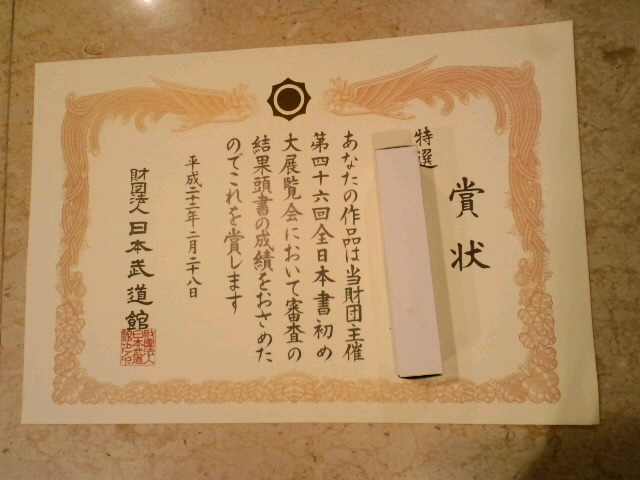 賞状
特選
あなたの作品は当財団主催
第四十六回全日本書初め
大展覧会において審査の
結果頭書の成績をおさめた
のでこれを賞します
平成二十二年二月二十八日
財団法人日本武道館